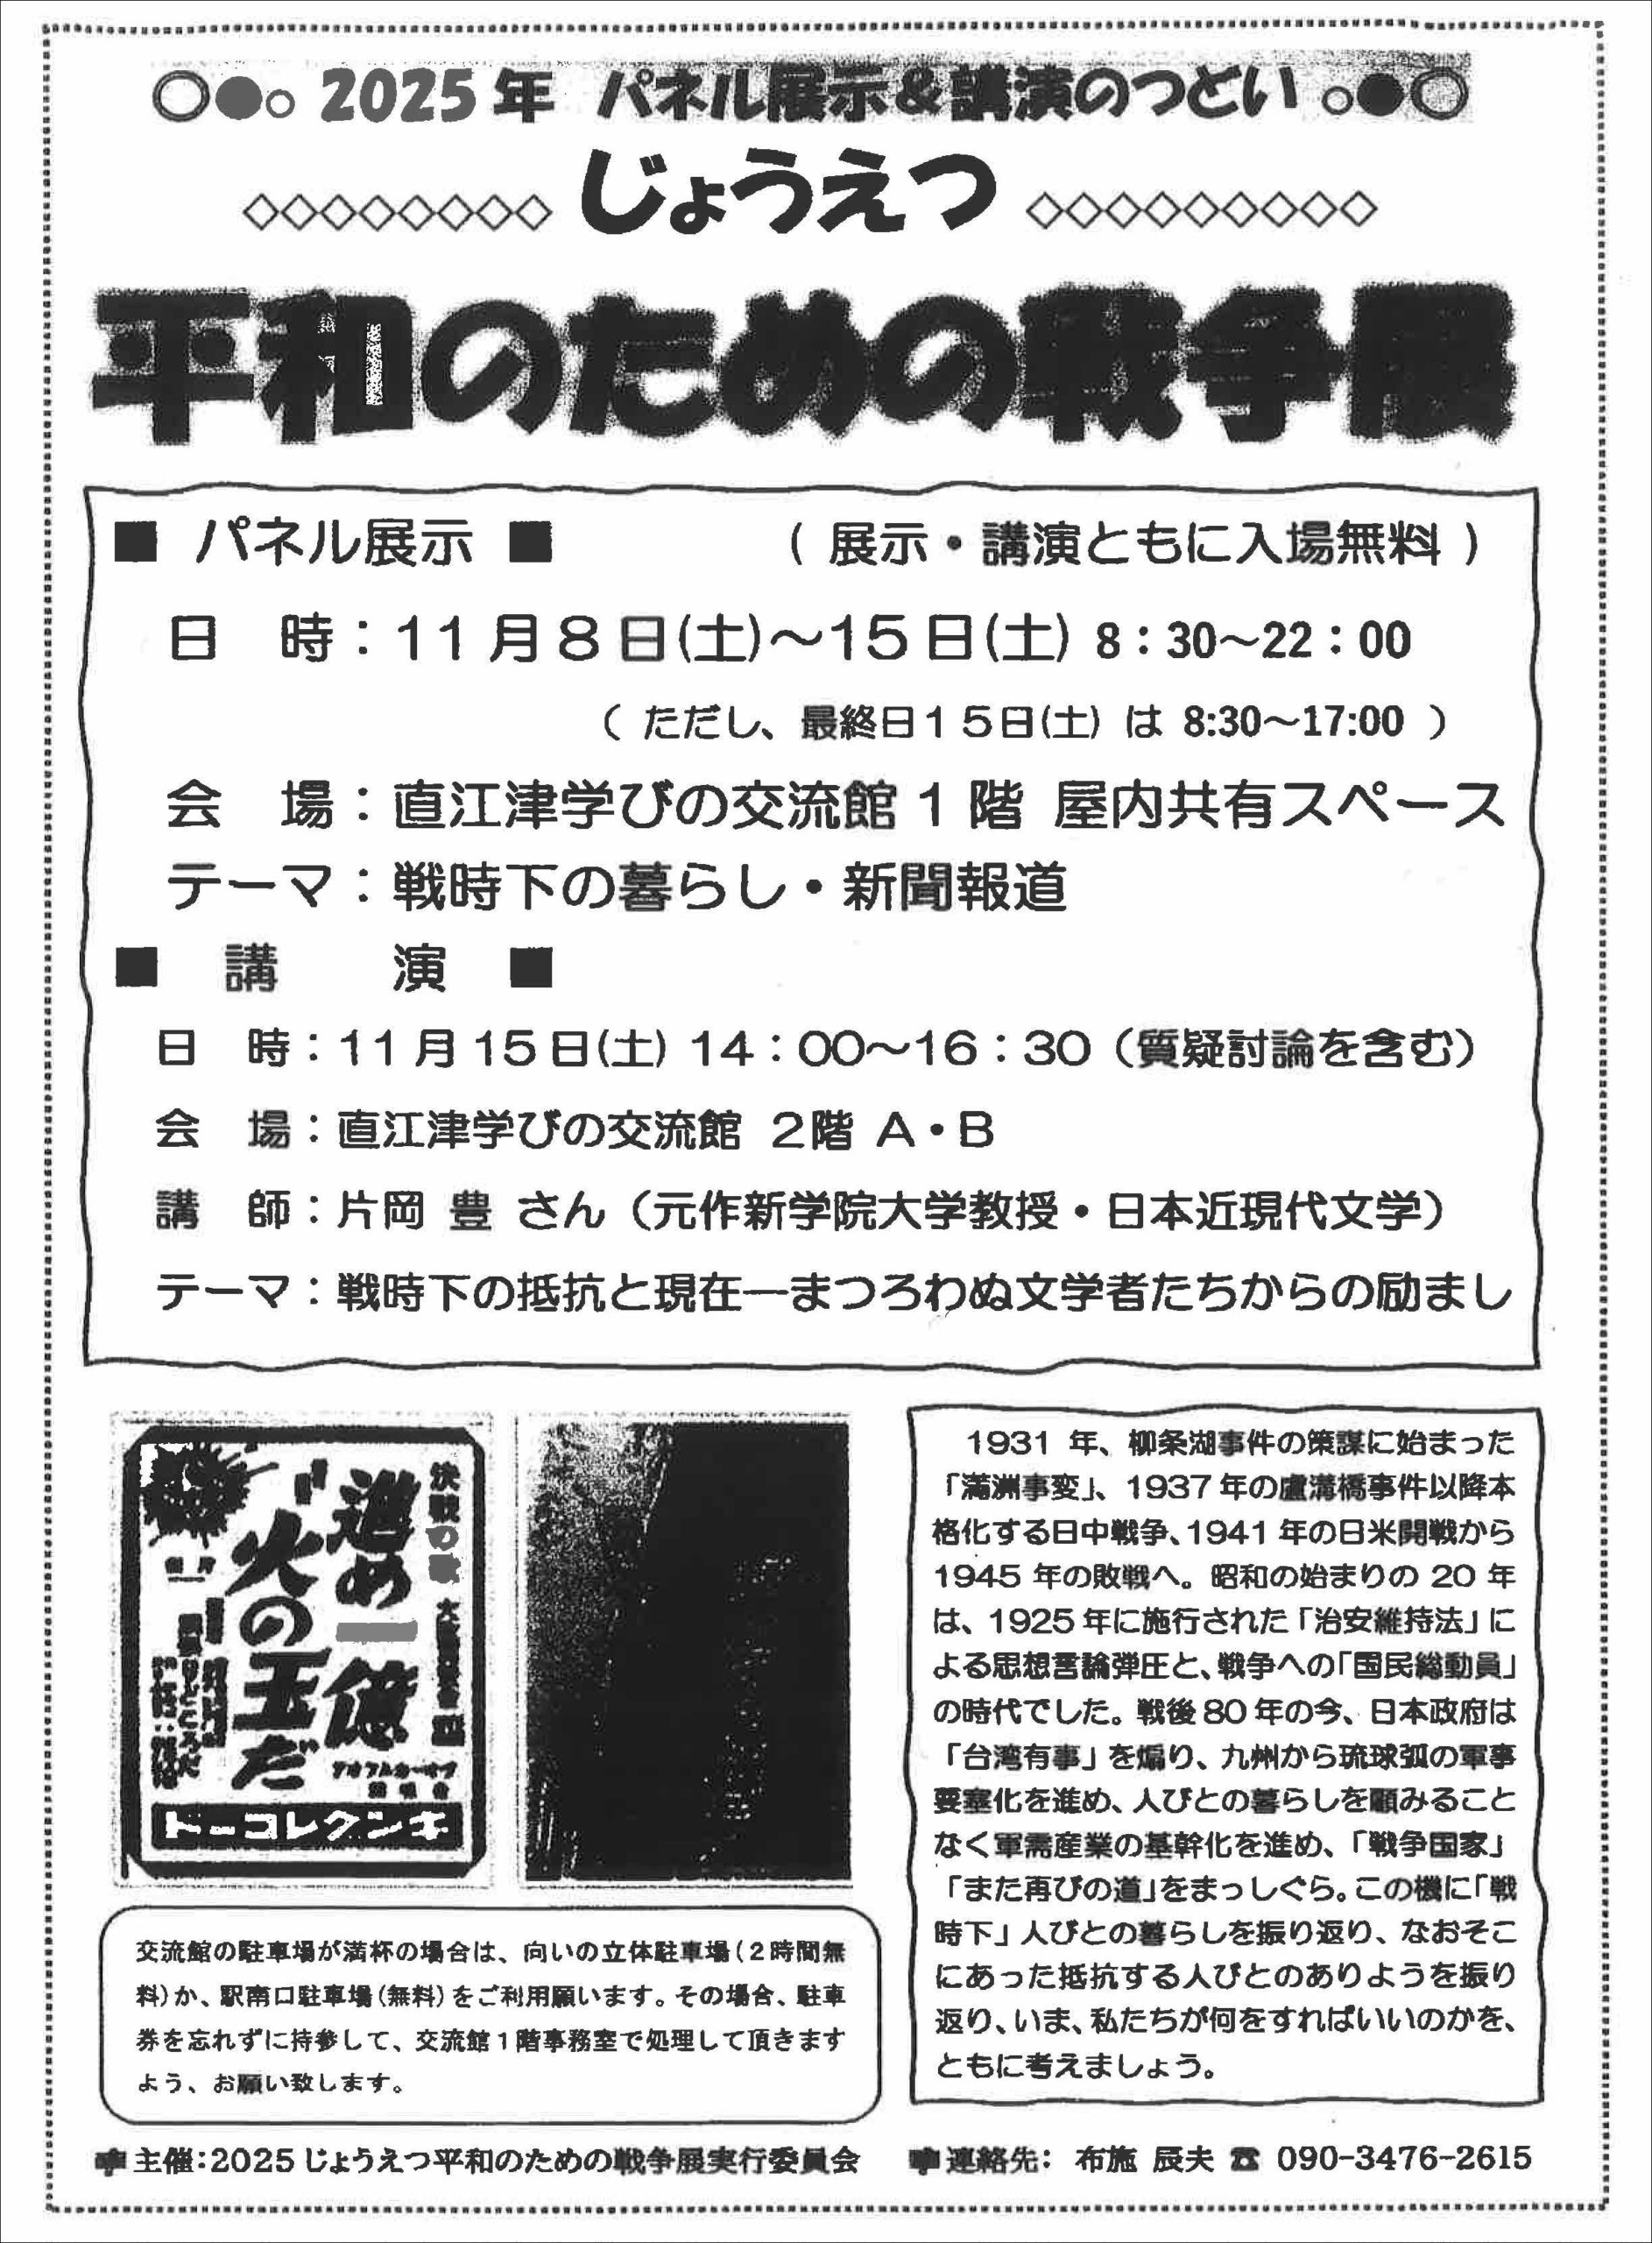 2025年 パネル展示&講演のつどい
じょうえつ
平和のための戦争展
■ パネル展示 ■ （展示・講演ともに入場無料）
日 時：11月8日(土)～15日(土) 8：30～22：00
（ただし、最終日15日(土) は 8:30～17:00 ）
会 場：直江津学びの交流館 1階 屋内共有スペース
テーマ：戦時下の暮らし・新聞報道
■ 講 演 ■
日 時：11月15日(土) 14：00～16：30（質疑討論を含む）
会 場：直江津学びの交流館 2階 A・B
講 師：片岡 豊 さん（元作新学院大学教授・日本近現代文学）
テーマ：戦時下の抵抗と現在―まつろわぬ文学者たちからの励まし
決戦の歌
進め一億
火の玉だ
トーコレクンキ
1931 年、柳条湖事件の策謀に始まった
「満洲事変」、1937年の盧溝橋事件以降本
格化する日中戦争、1941 年の日米開戦から
1945 年の敗戦へ。昭和の始まりの 20 年
は、1925年に施行された「治安維持法」に
よる思想言論弾圧と、戦争への「国民総動員」
の時代でした。戦後80年の今、日本政府は
「台湾有事」を煽り、九州から琉球弧の軍事
要塞化を進め、人びとの暮らしを顧みること
なく軍需産業の基幹化を進め、「戦争国家」
「また再びの道」をまっしぐら。この機に「戦
時下」人びとの暮らしを振り返り、なおそこ
にあった抵抗する人びとのありようを振り
返り、いま、私たちが何をすればいいのかを、
ともに考えましょう。
交流館の駐車場が満杯の場合は、向いの立体駐車場（2時間無
料）か、駅南口駐車場（無料）をご利用願います。その場合、駐車
券を忘れずに持参して、交流館1階事務室で処理して頂きます
よう、お願い致します。
主催：2025じょうえつ平和のための戦争展実行委員会 連絡先： 布施 辰夫 ☎ 090-3476-2615